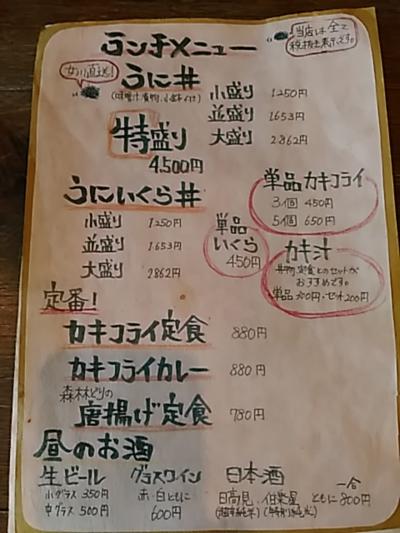 ランチメニュー
当店は全て
税抜き表示です。
女川直送!
うに丼
小盛り 1250
並盛り 1653
大盛り 2862
特盛り
4,500円
うにいくら丼
小盛り 1250
並盛り 1653
大盛り 2862
単品
いくら
450円
単品カキフライ
3個 450円
5個 650円
カキ汁
丼物、定食とのセットが
おすすめです。
セット200円
定番!
カキフライ定食 880円
カキフライカレー 880円
森林どりの
唐揚げ定食 780円
昼のお酒
生ビール
小グラス 350円
中グラス 500円
グラスワイン
赤・白ともに
600円
日本酒 一合
日高見、伯楽星 ともに 800円